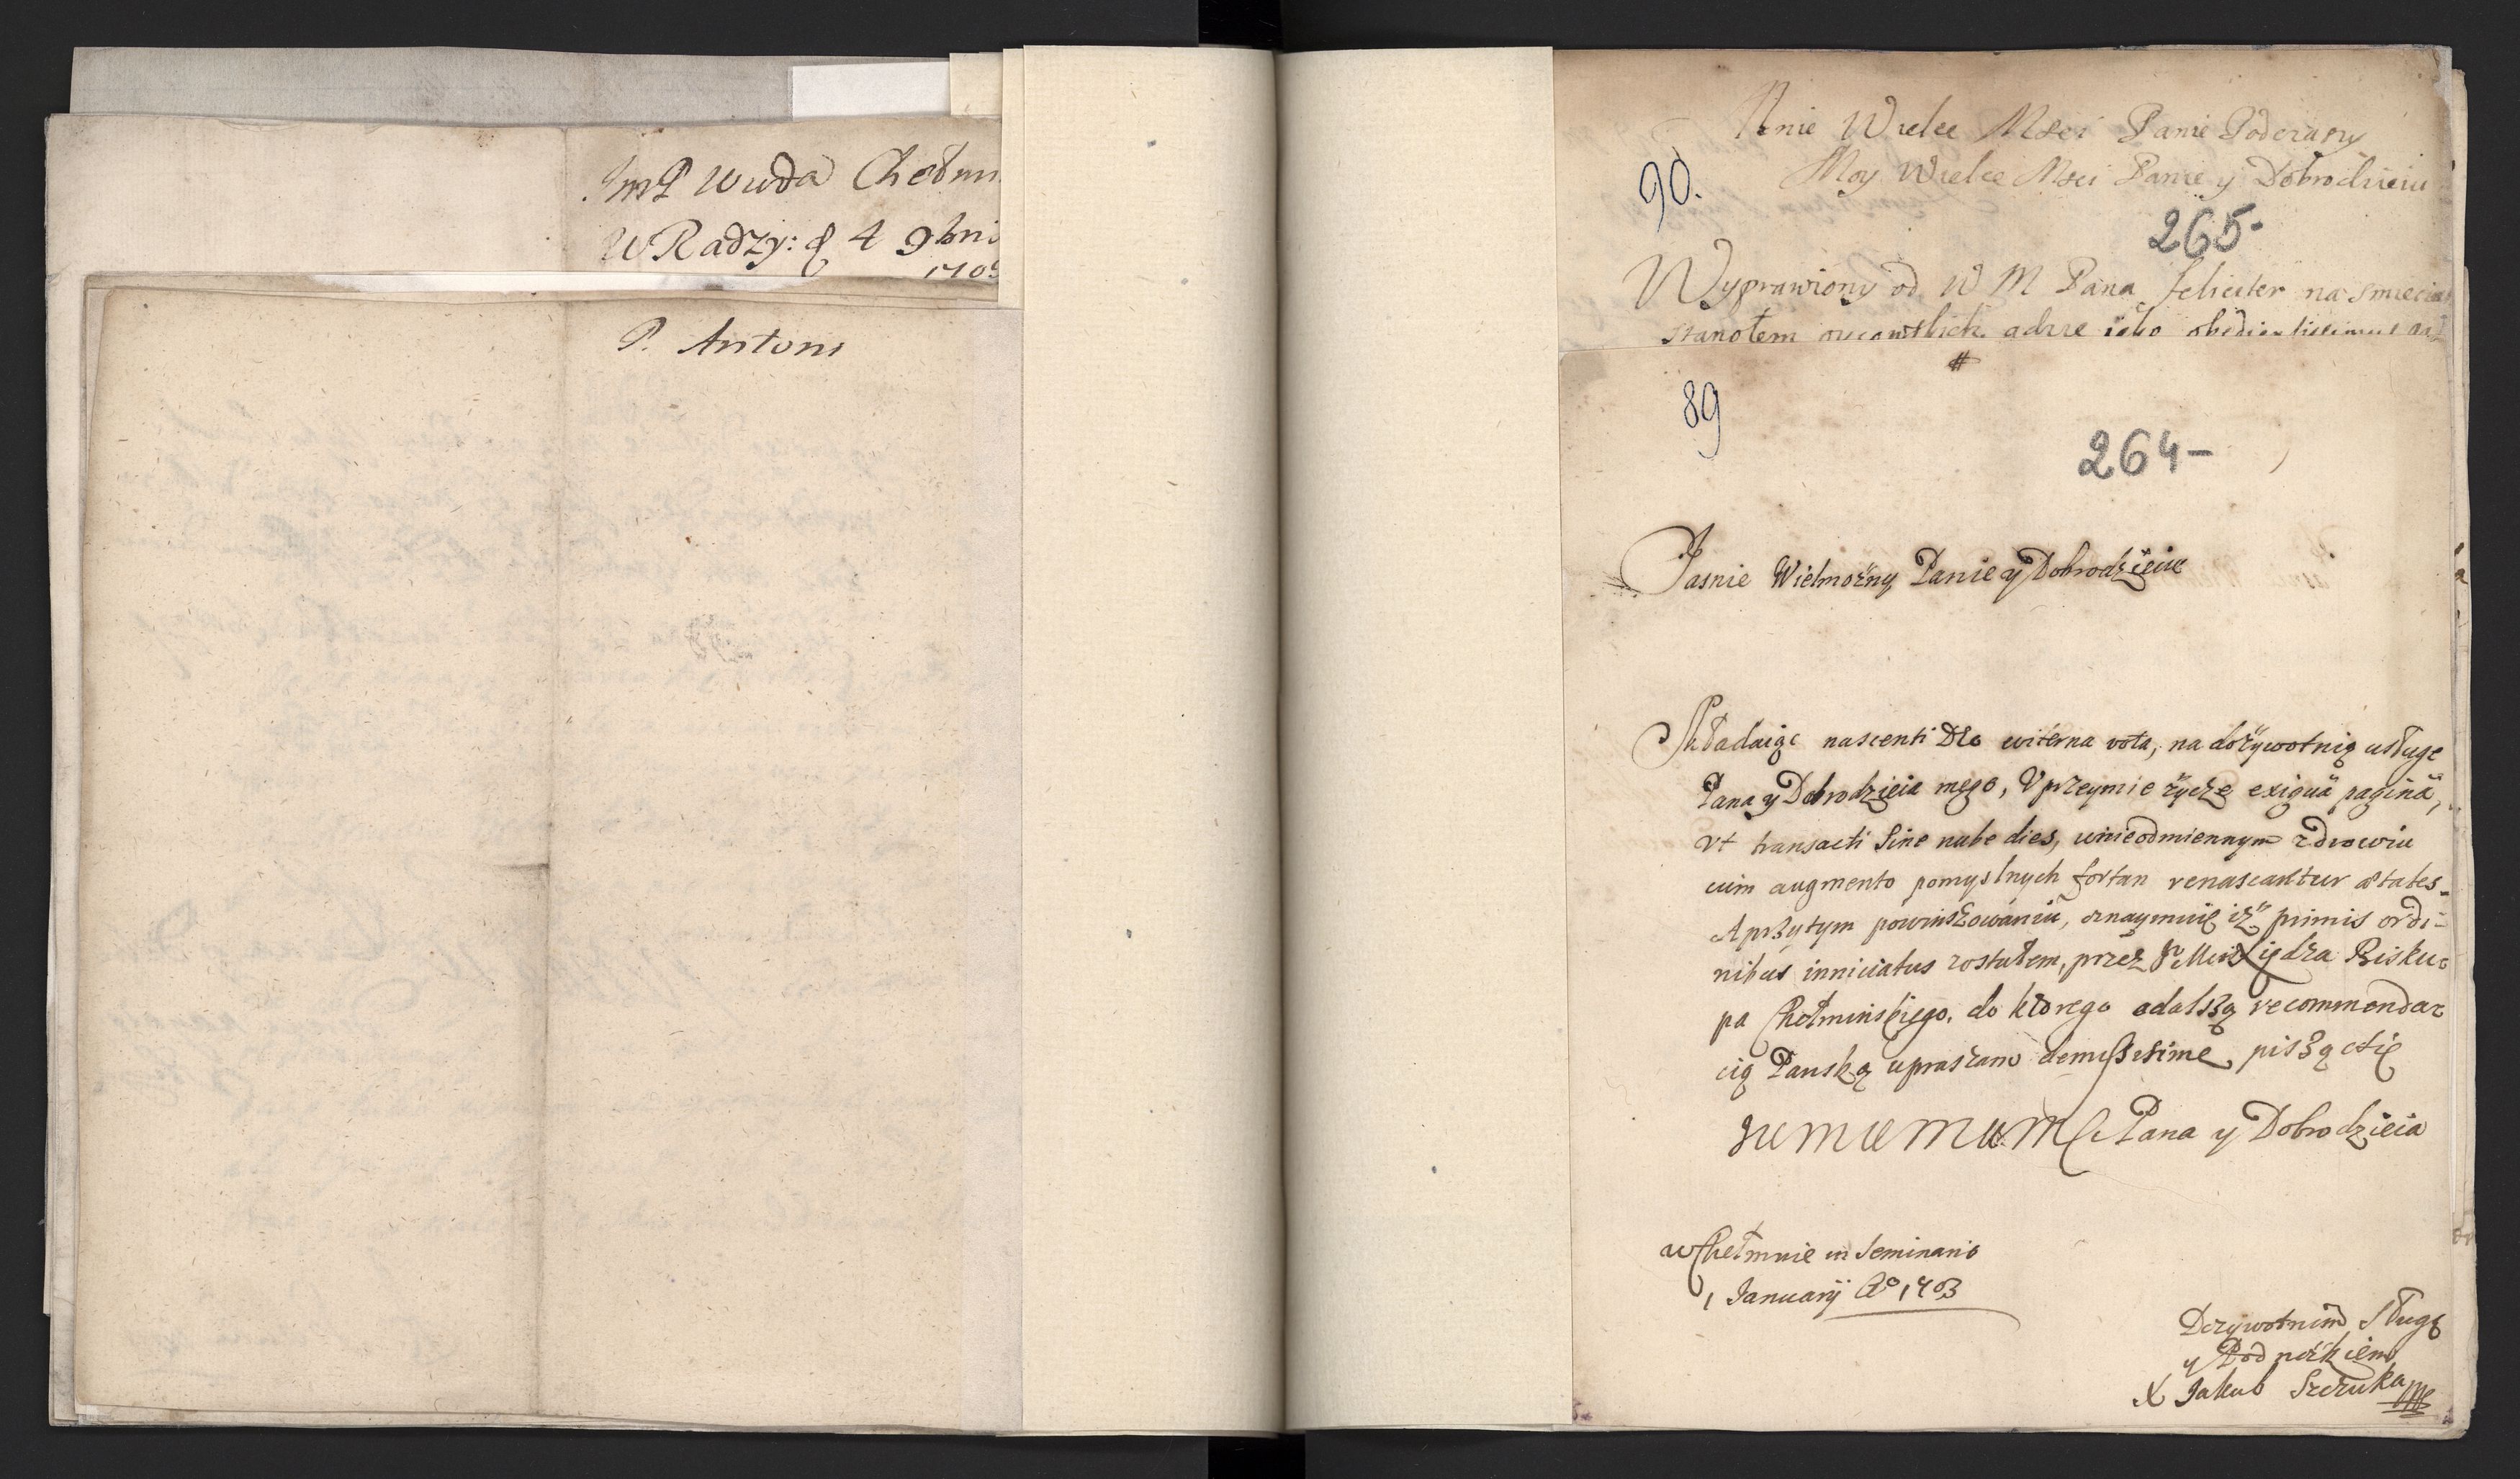 JmP Wuda Chełmi
W Radzy: d 4 9bri
1703
P. Antoni
Mnie Wielce Mści Panie Podczaszy
90.
Moy Wielce Mści Panie y Dobrodzieiu
265-
Wyprawiony od W M Pana feliciter na
stanołem oycowskich
#
89
264-
Jasnie Wielmożny Panie y Dobrodzieiu
Składaiąc nascenti Deo witerna vota, na dożywotnią usługę
Pana y Dobrodzieia mego, Uprzeymie życzę exiguâ paginâ,
vt transacti sine nube dies, wnieodmiennym zdrowiu
cum augmento pomyslnych fortun renascantur ætates.
A przytym powinszowaniu, oznaymuię iż primis ordi-
nibus inniciatus zostałem, przez Xiędza Bisku-
pa Chełminskiego, do ktorego odalszą recommenda-
cią Panską upraszam demississime, pisząc się
Pana y Dobrodzieia
w Chełmnie in Seminario
1 Januarij Ao 1703
Dozywotnim Sługą
y Podnożkiem
X Jakub Szczuka mp